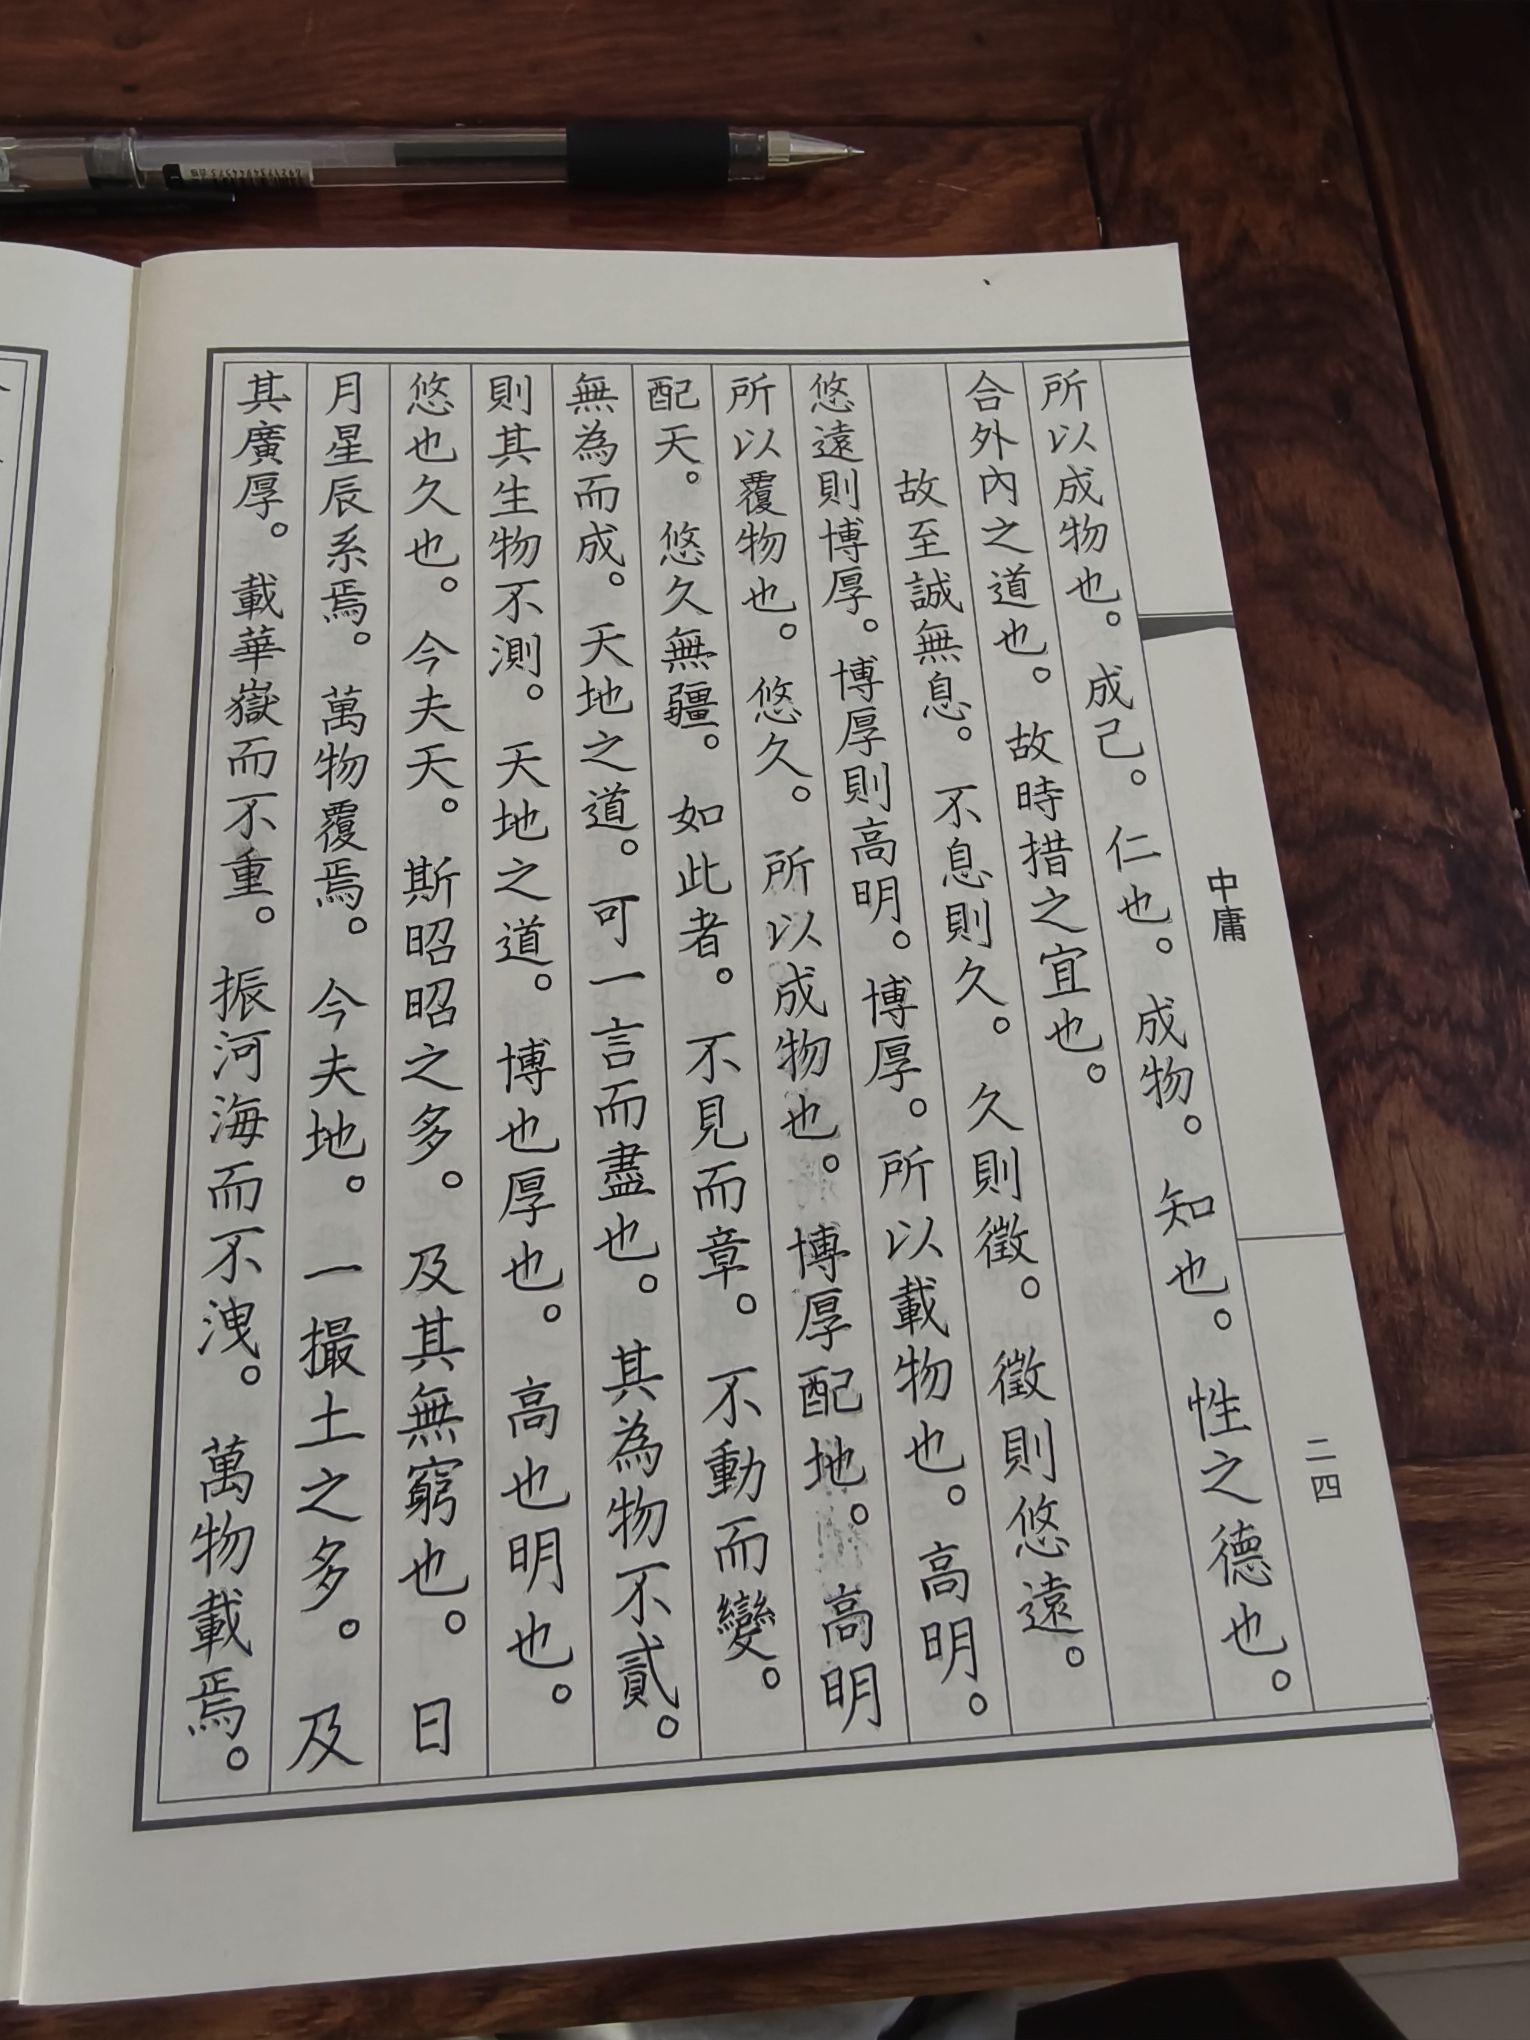 中庸
二四
所以成物也。成己。仁也。成物。知也。性之德也。
合外內之道也。故時措之宜也。
故至誠無息。不息則久。久則徵。徵則悠遠。
悠遠則博厚。博厚則高明。博厚。所以載物也。高明。
所以覆物也。悠久。所以成物也。博厚配地。高明
配天。悠久無疆。如此者。不見而章。不動而變。
無為而成。天地之道。可一言而盡也。其為物不貳。
則其生物不測。天地之道。博也厚也。高也明也。
悠也久也。今夫天。斯昭昭之多。及其無窮也。日
月星辰系焉。萬物覆焉。今夫地。一撮土之多。及
其廣厚。載華嶽而不重。振河海而不洩。萬物載焉。